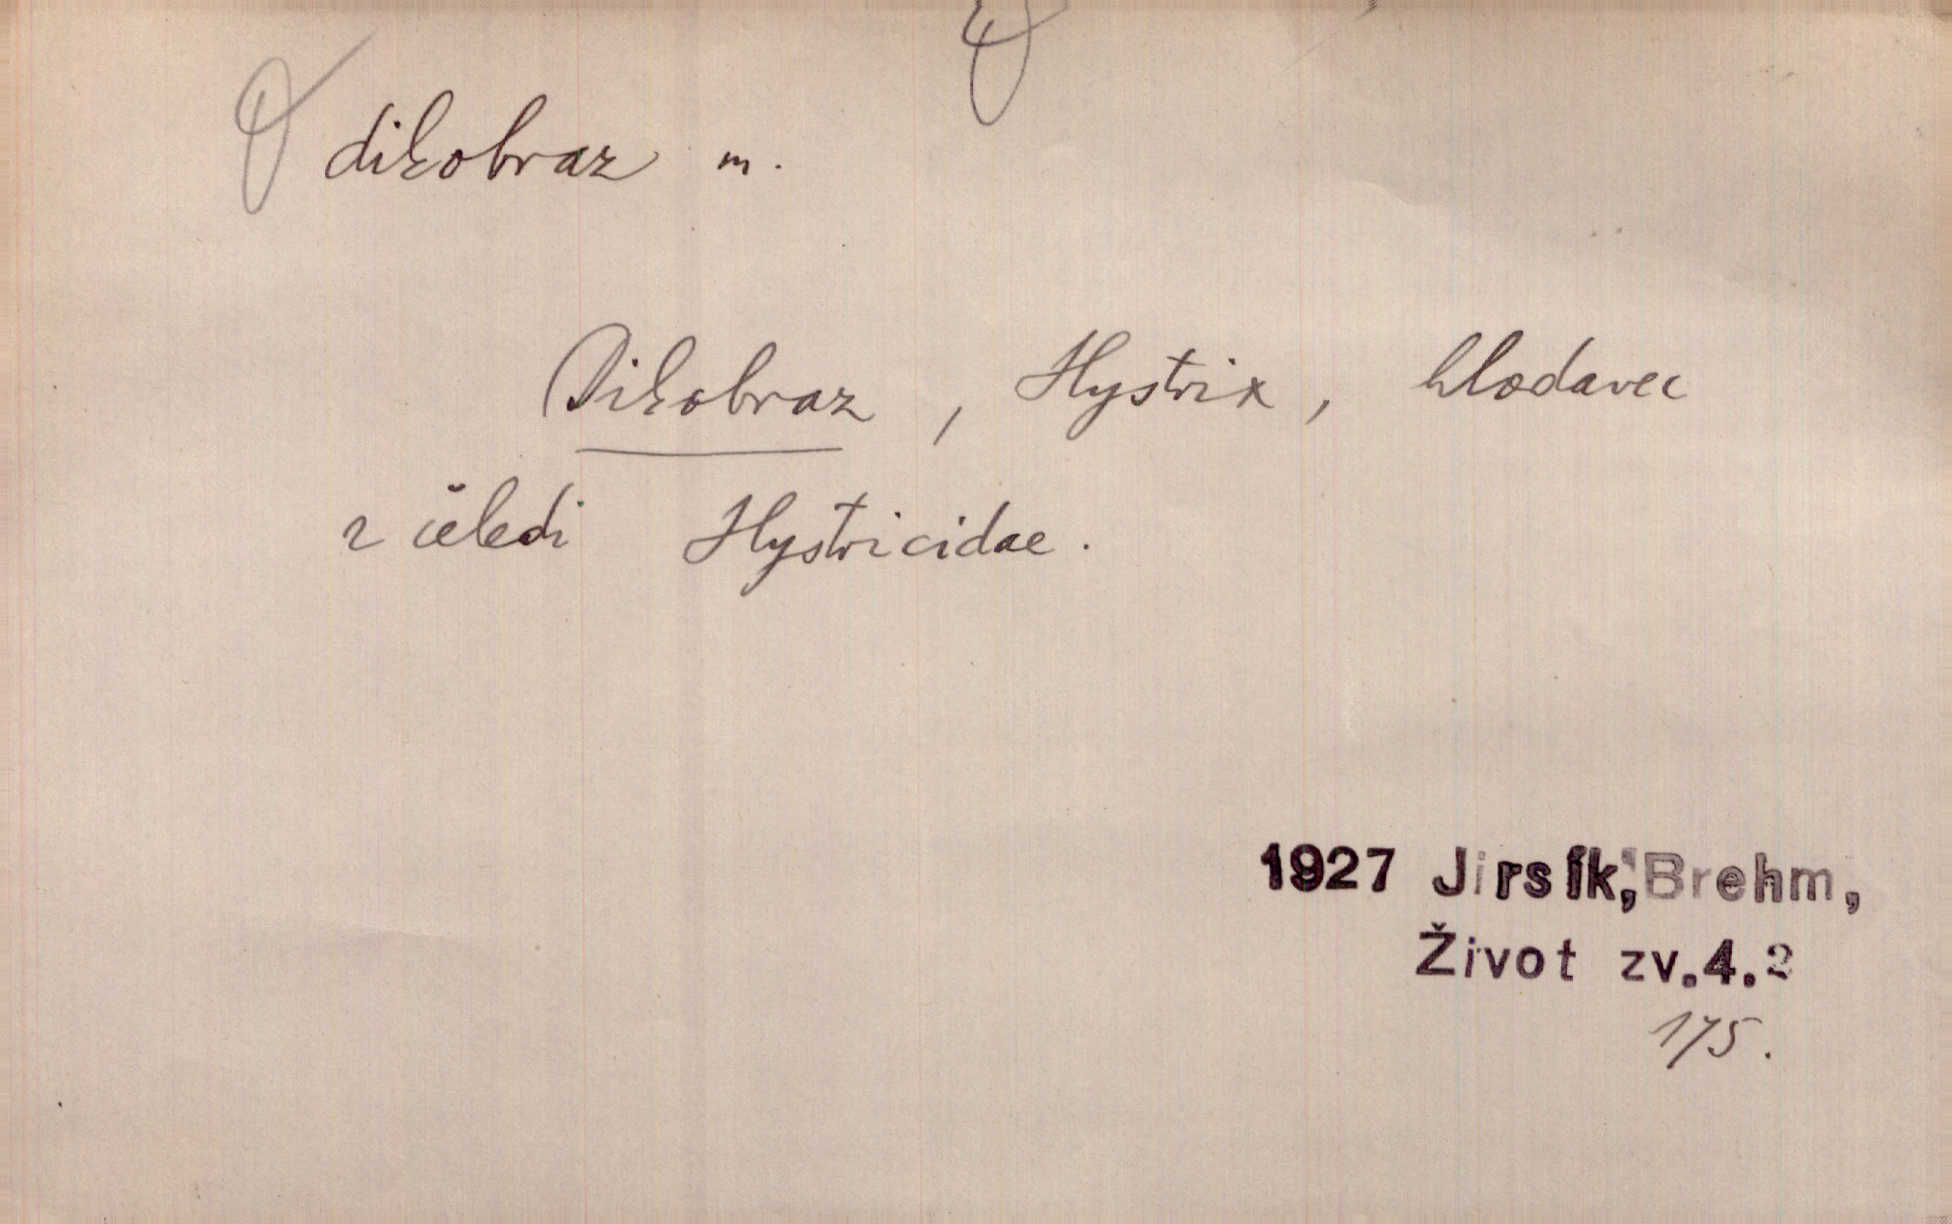 dikobraz m.
Dikobraz, Hystrix, hlodavec
z čeledi Hystricidae.
1927 Jirsík, Brehm,
Život zv.4.2
175.